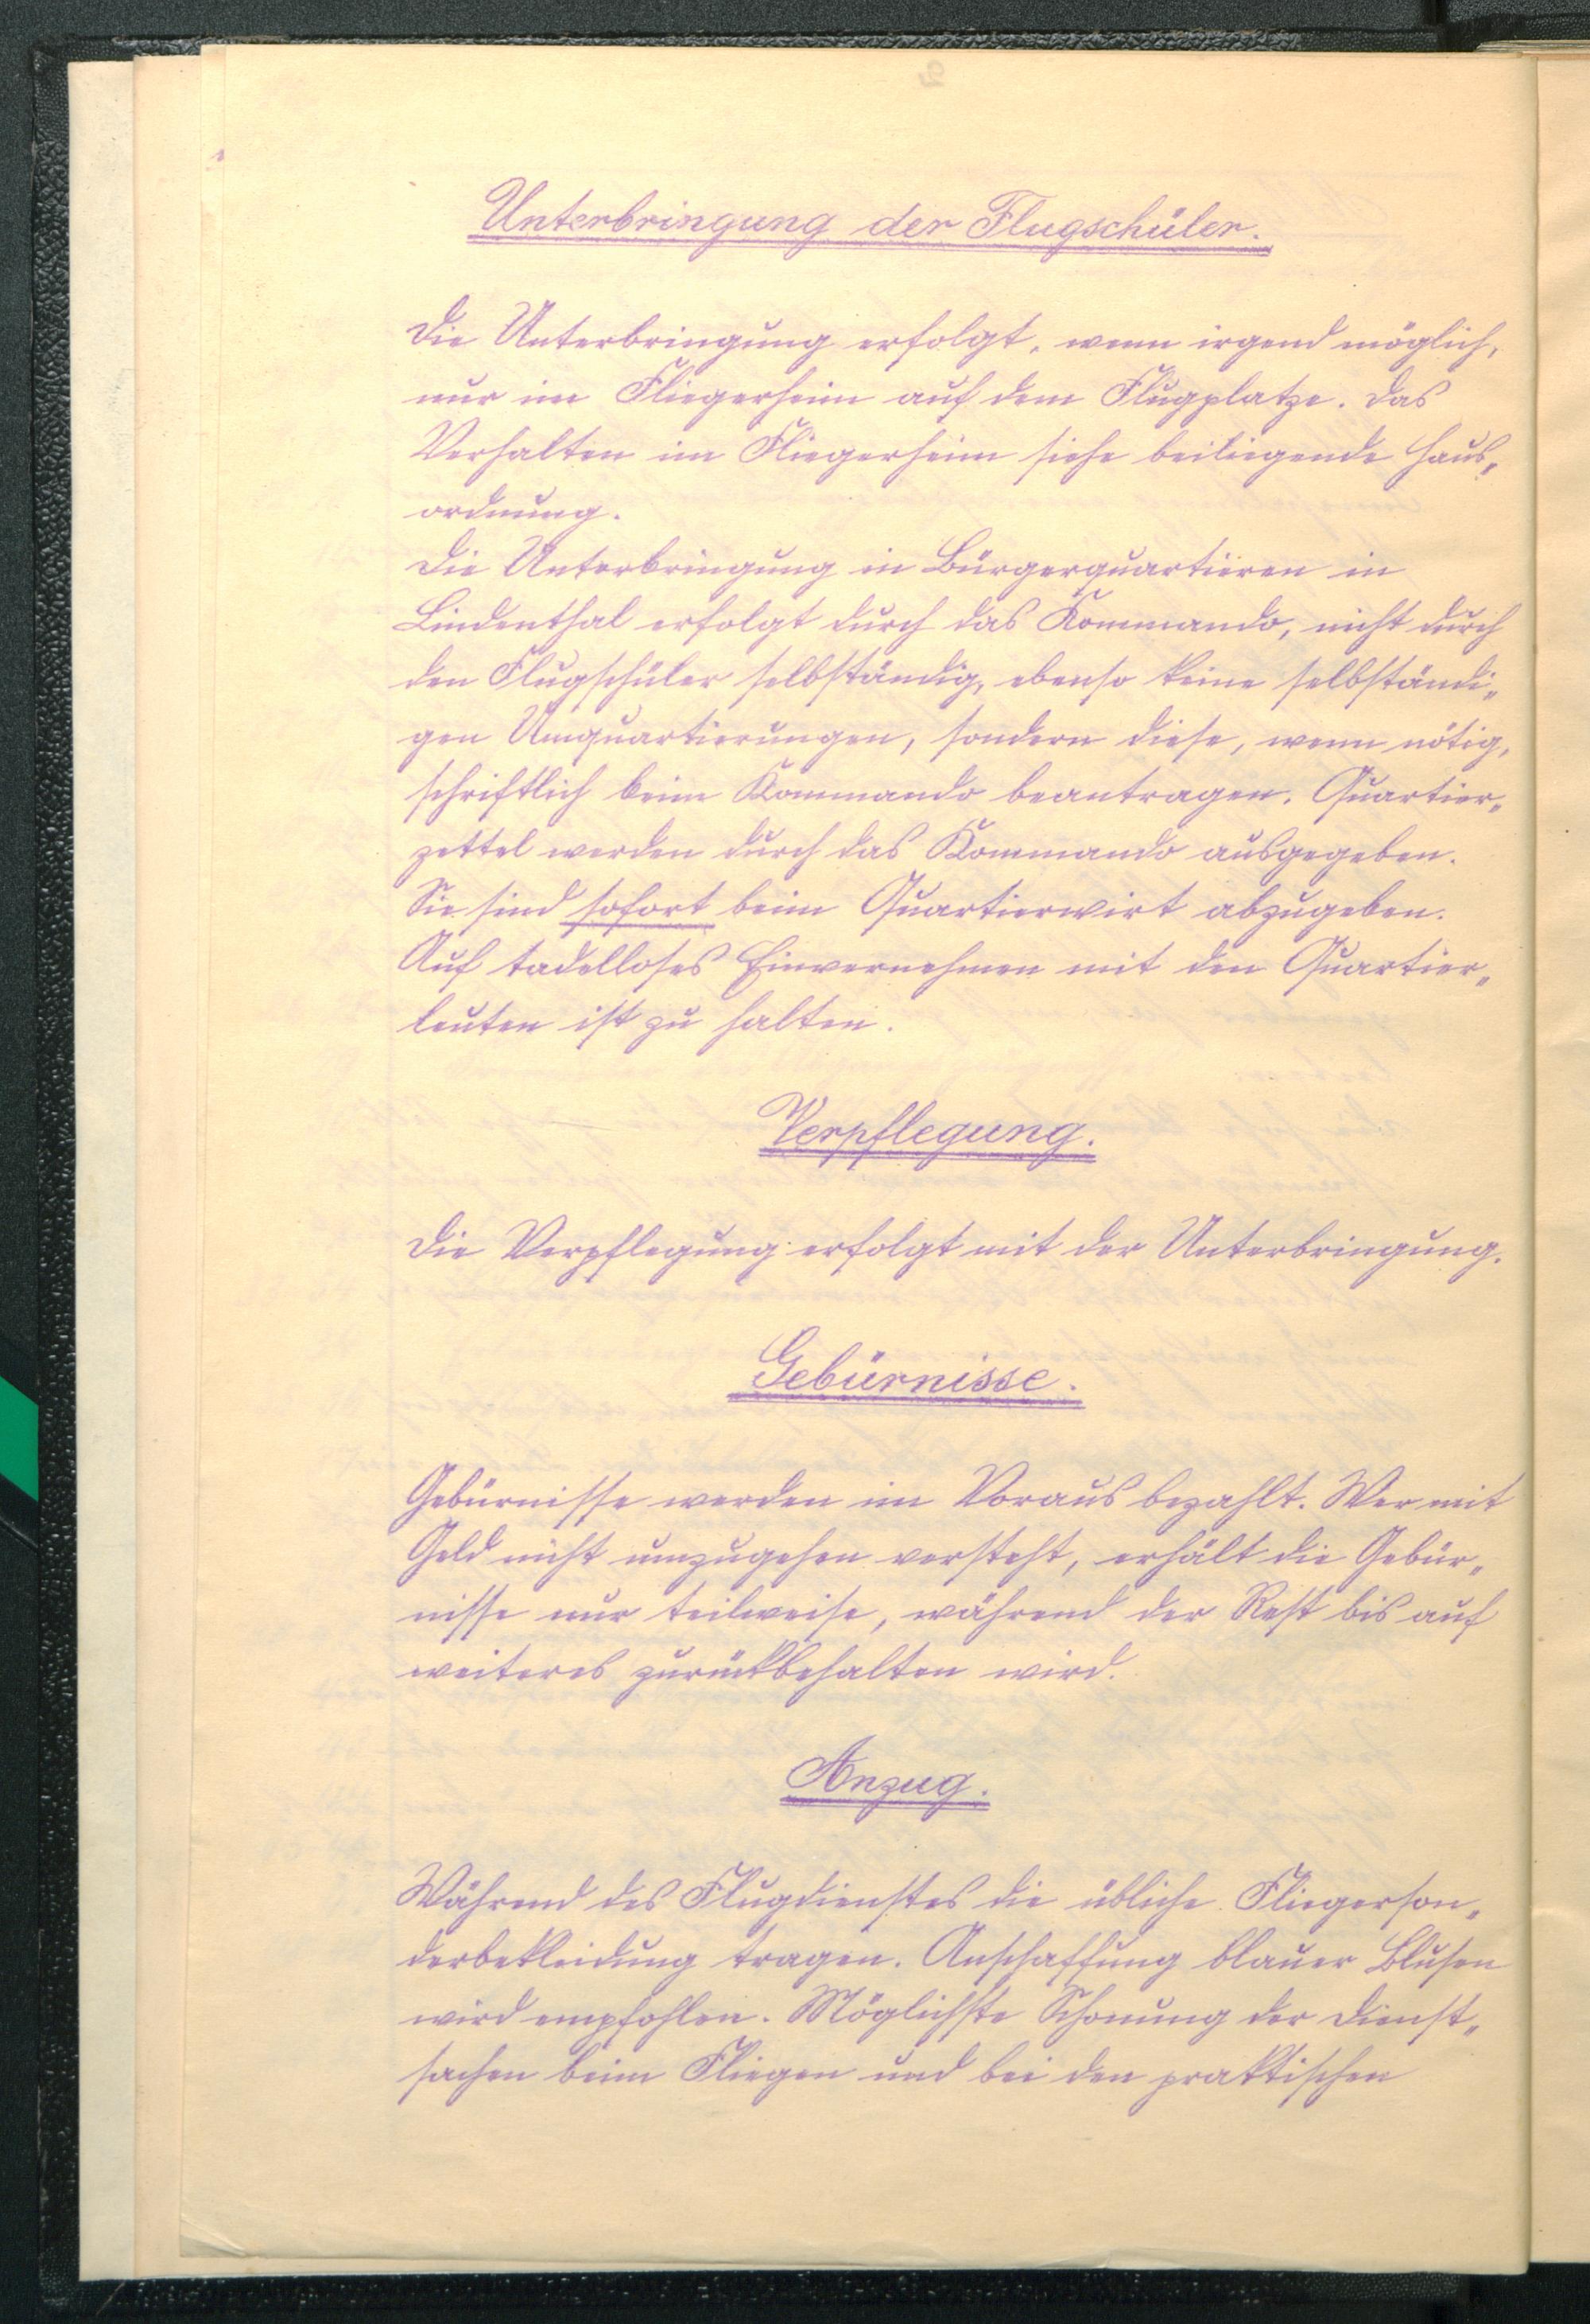 Unterbringung der Flugschüler.
Die Unterbringung erfolgt, wenn irgend möglich,
nur im Fliegerheim auf dem Flugplatze. Das
Verhalten im Fliegerheim siehe beiliegende Haus„
ordnung.
Die Unterbringung in Bürgerquartieren in
Lindenthal erfolgt durch das Kommando, nicht durch
den Flugschüler selbständig, ebenso keine selbständi„
gen Umquartierungen, sondern diese, wenn nötig,
schriftlich beim Kommando beantragen. Quartier„
zettel werden durch das Kommando ausgegeben.
Sie sind sofort beim Quartierwirt abzugeben.
Auf tadelloses Einvernehmen mit den Quartier„
leuten ist zu halten.
Verpflegung.
Die Verpflegung erfolgt mit der Unterbringung.
Gebürnisse.
Gebürnisse werden im Voraus bezahlt. Wer mit
Geld nicht umzugehen versteht, erhält die Gebür„
nisse nur teilweise, während der Rest bis auf
weiteres zurückbehalten wird.
Anzug.
Während des Flugdienstes die übliche Fliegerson„
derbekleidung tragen. Anschaffung blauer Blusen
wird empfohlen. Möglichste Schonung der Dienst„
sachen beim Fliegen und bei den praktischen